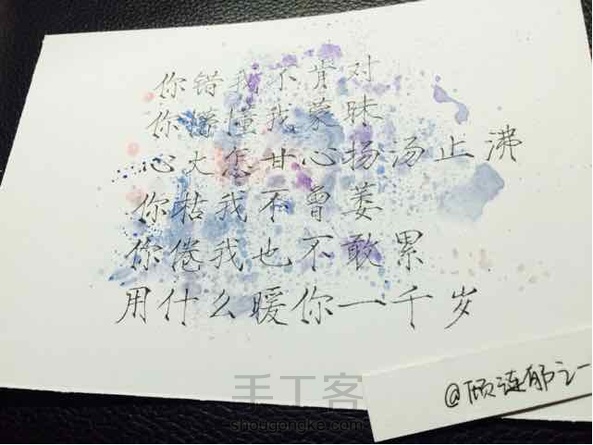 你错我不肯对
你懵懂我蒙昧
心火怎甘心扬汤止沸
你枯我不曾萎
你倦我也不敢累
用什么暖你一千岁
手工客
shougongke.com